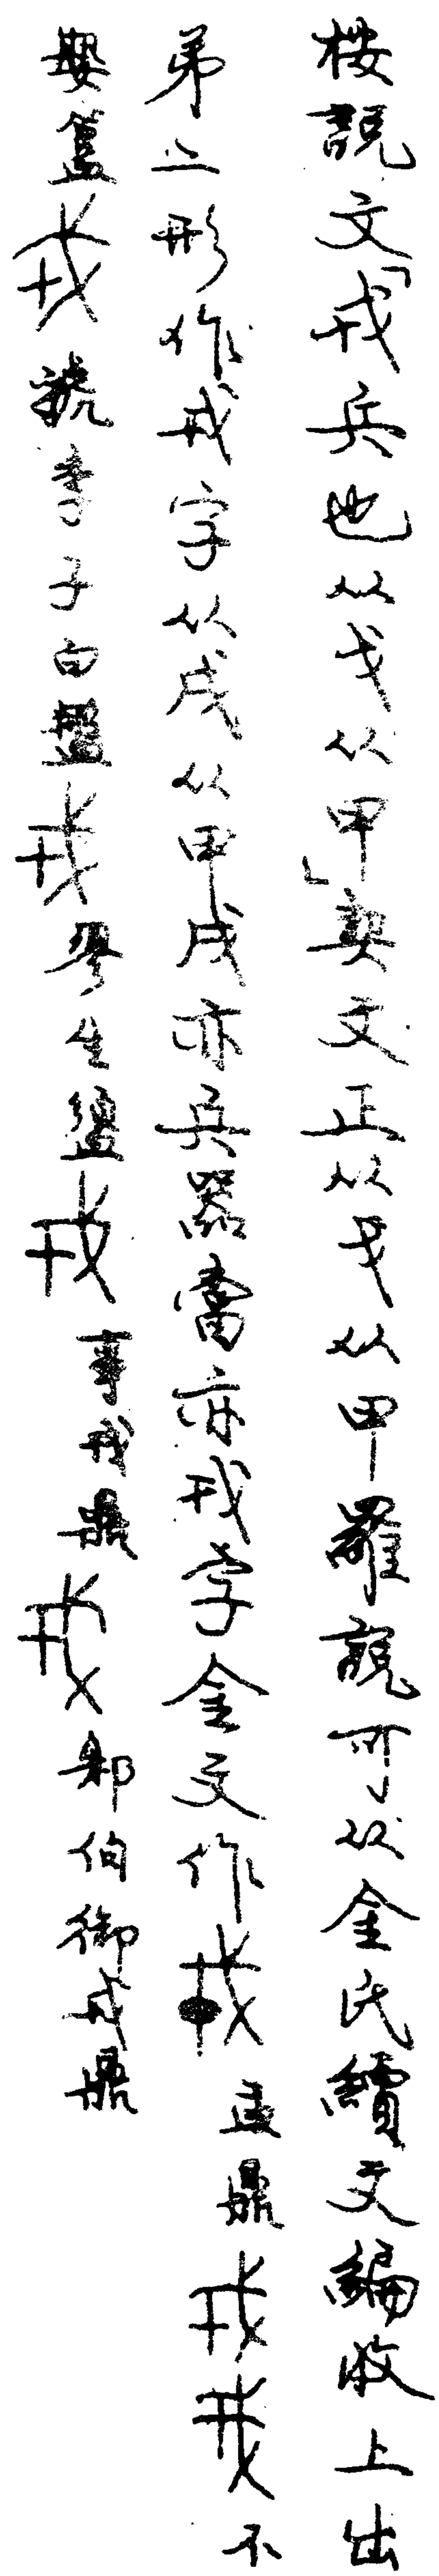 桉說文「戎兵也从戈从甲」契文正从戈从甲羅說可从金氏續文編收上出
弟二形作戎字从戌从甲戌亦兵器當亦戎字金文作盂鼎不
簋虢季子白盤生盨事戎鼎伯御戎鼎